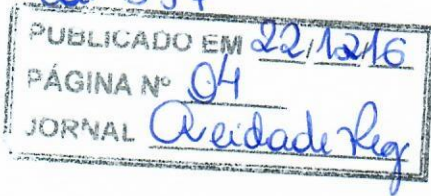 PUBLICADO EM 22/12/16
PÁGINA Nº 04
JORNAL A cidade Reg